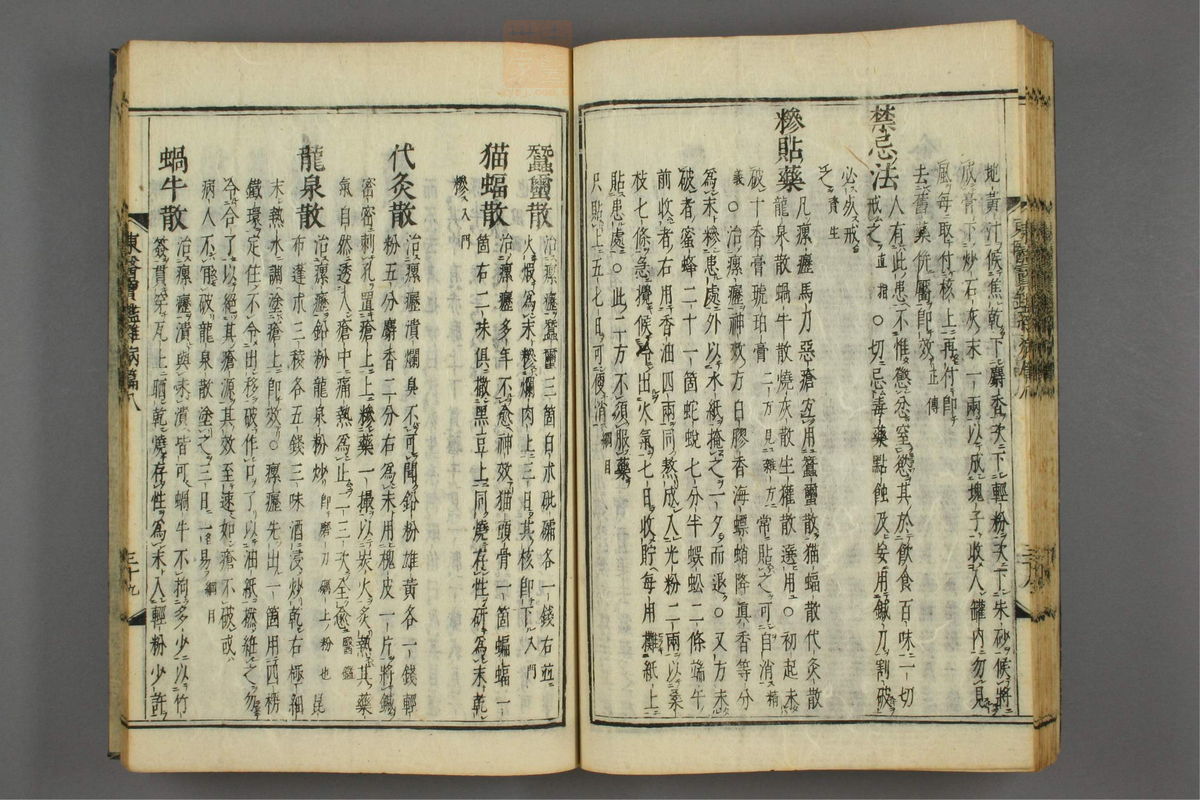 地黃汁候焦乾下麝香次下輕粉次下朱砂候將
成膏下炒石灰末一兩以成塊子收入罐內勿見
風每取付核上再付即
去舊藥仍屬即效正傳
禁忌法人有此患不惟懲忿窒慾其於飲食百味一切
必須戒戒之直指○切忌毒藥點蝕及妄用鍼刀割破
之資生
糝貼藥凡瘰癧馬刀惡瘡宜用蚕蠒散猫蝠散代灸散
龍泉散蝸牛散燒灰散生㹠散選用○初起未
破十香膏琥珀膏二方見雜方常貼之可自消精
義○治瘰癧神效方白膠香海螵蛸降眞香等分
爲末糝患處外以水紙掩之一夕而退○又方未
破者蜜蜂二十一箇蛇蛻七分半蜈蚣二條端午
前收者右用香油四兩同熬成入光粉二兩以桑
枝七條急攪候冷出火氣七日收貯每用攤紙上
貼患處○此二方不須服藥
尺貼上五七日可便消綱目
蚕蠒散治瘰癧蚕蠒三箇白朮砒礵各一錢右並
火煅爲末糝爛肉上三日其核卽下入門
猫蝠散治瘰癧多年不愈神效猫頭骨一箇蝙蝠一
箇右二味俱撒黑豆上同燒存性硏爲末乾
糝入門
代灸散治瘰癧潰爛臭不可聞鉛粉雄黃各一錢輕
粉五分麝香二分右爲末用槐皮一片將鍼
密密刺孔置瘡上上糝藥一撮以炭火炙熱其藥
氣自然透入瘡中痛熱爲止二三次全愈醫鑑
龍泉散治瘰癧鉛粉龍泉粉炒卽磨刀礵上粉也昆
布蓬朮三稜各五錢三味酒浸炒乾右極細
末熱水調塗瘡上卽效○瘰癧先出一箇用四楞
鐵環定住不令出移破作口了以油紙撚紙之勿
令合了以絕其瘡源其效至速如瘡不破或
病人不肯破龍泉散塗之三日一易綱目
蝸牛散治瘰癧潰與未潰皆可蝸牛不拘多少以竹
簽貫穿瓦上晒乾燒存性爲末入輕粉少許
東醫寶鑑雜病篇八
三十九